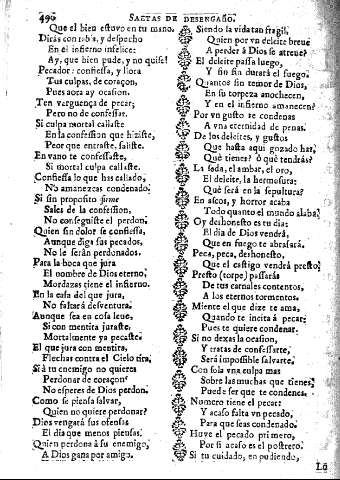 496 SAETAS DE DESENGAÑO.
Que el bien estuvo en tu mano.
Dirás con rabia, y despecho
En el infierno infelice:
Ay, que bien pude, y no quise!
Pecador: confiessa, y llora
Tus culpas, de coraçon,
Pues aora ay ocasion.
Ten verguença de pecar;
Pero no de confessar.
Si culpa mortal callaste
En la confession que hiziste,
Peor que entraste, saliste.
En vano te confessaste,
Si mortal culpa callaste.
Confiessa lo que has callado,
No amanezcas condenado.
Si sin proposito firme
Sales de la confession,
No conseguiste el perdon.
Quien sin dolor se confiessa,
Aunque diga sus pecados,
No le serán perdonados.
Para la boca que jura
El nombre de Dios eterno,
Mordazas tiene el infierno.
En la casa del que jura,
No faltará desventura.
Aunque sea en cosa leve,
Si con mentira juraste,
Mortalmente ya pecaste.
El que jura con mentira,
Flechas contra el Cielo tira.
Si à tu enemigo no quieres
Perdonar de coraçon,
No esperes de Dios perdon.
Como se piensa salvar,
Quien no quiere perdonar?
Dios vengará sus ofensas
El dia que menos piensas.
Quien perdona à su enemigo,
A Dios gana por amigo.
Siendo la vida tan fragil,
Quien por vn deleite breve
A perder à Dios se atreve?
El deleite passa luego,
Y sin fin durará el fuego.
Quantos sin temor de Dios,
En su torpeza anochecen,
Y en el infierno amanecen?
Por vn gusto se condenas
A vna eternidad de penas.
De los deleites, y gustos
Que hasta aqui gozado has,
Què tienes? ò què tendrás?
La seda, el ambar, el oro,
El deleite, la hermosura:
Què será en la sepultura?
En ascos, y horror acaba
Todo quanto el mundo alaba.
Oy deshonesto es tu dia:
El dia de Dios vendrá,
Que en fuego te abrasará.
Peca, peca, deshonesto,
Que el castigo vendrá presto.
Presto (torpe) passarás
De tus carnales contentos,
A los eternos tormentos.
Miente el que dize te ama,
Quando te incita à pecar;
Pues te quiere condenar.
Si no dexas la ocasion,
Y tratas de confessarte,
Será impossible salvarte.
Con sola vna culpa mas
Sobre las muchas que tienes,
Puede ser que te condenes.
Numero tiene el pecar:
Y acaso falta vn pecado,
Para que seas condenado.
Huye el pecado primero,
Por si acaso es el postrero.
Si tu cuidado, en pudiendo,
Lo